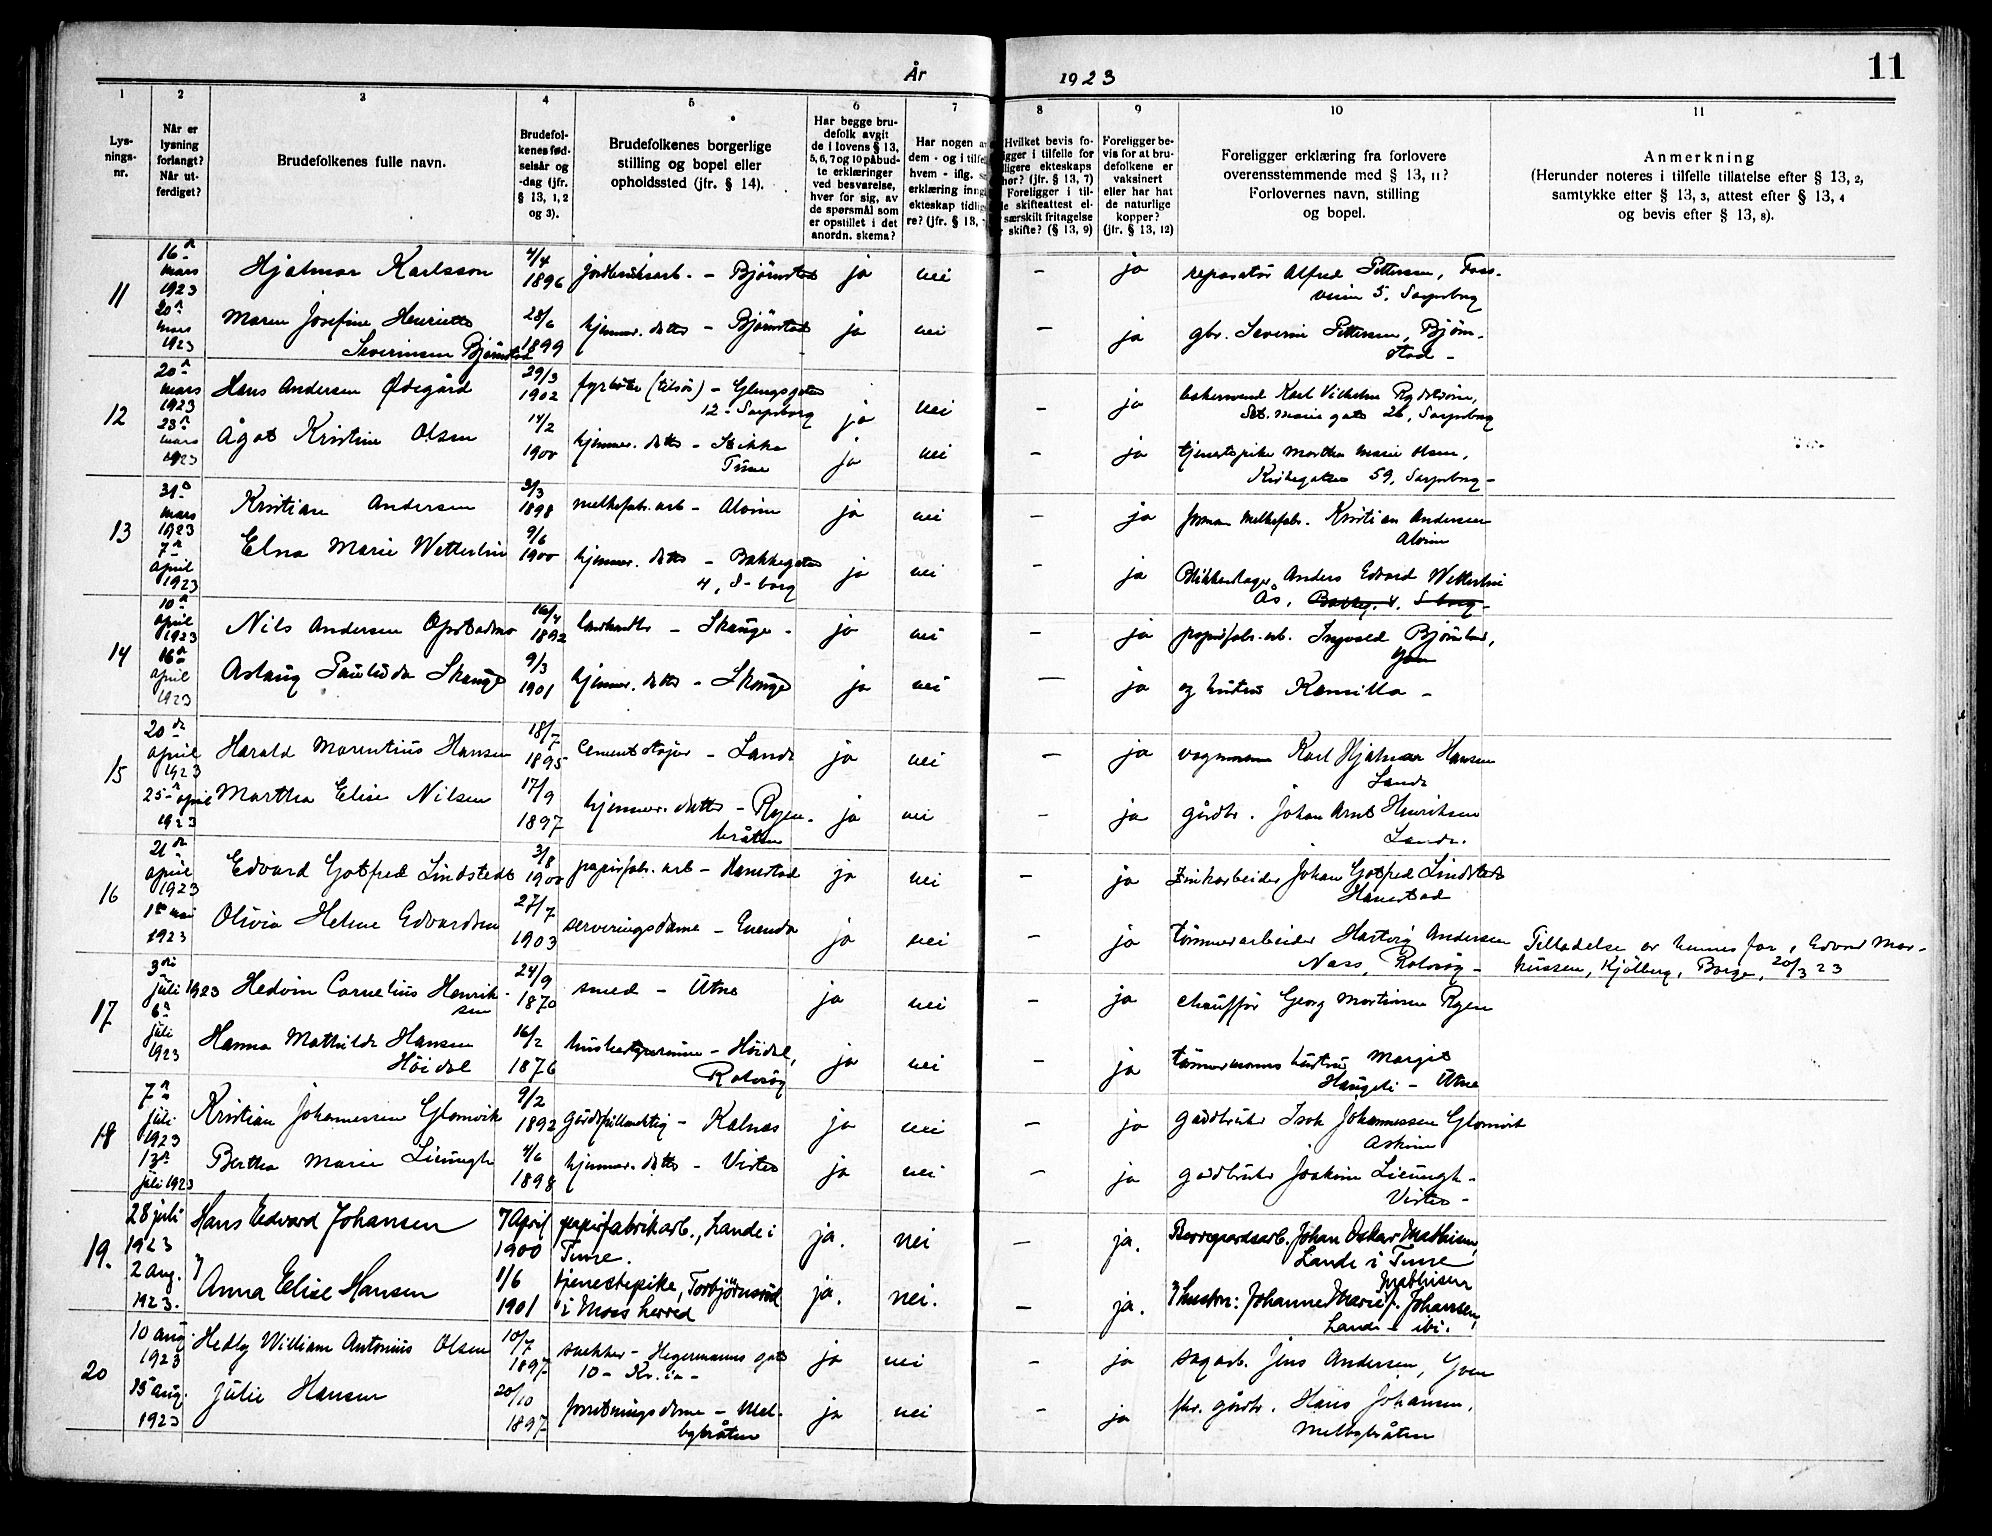 År 1923
11
1 2 3 4 5 6 7 8 9 10 11
Lys-
nings-
nr.
Når er
lysning
forlangt?
Når ut-
ferdiget?
Brudefolkenes fulle navn.
Brudefol-
kenes fød-
selsår og
-dag (jfr.
§ 13, 1, 2
og 3).
Brudefolkenes borgerlige
stilling og bopel eller
opholdssted (jfr. § 14).
Har begge bru-
defolk avgit
de i lovens § 13,
5, 6, 7 og 10 påbud-
te erklæringer
ved besvarelse,
hver for sig, av
de spørsmål som
er opstillet i det
anordn. skema?
Har nogen av
dem - og i tilfe
hvem - iflg. s
erklæring inng
ekteskap tidlig
re? (jfr. § 13,
Hvilket bevis fo-
igger i tilfelle for
ligere ekteskaps
hør? (jfr. § 13, 7)
Foreligger i til-
le skifteattest el-
særskilt fritagelse
skifte? (§ 13, 9)
Foreligger be-
vis for at bru-
defolkene er
vaksinert
eller har hat
de naturlige
kopper?
(jfr. § 13, 12)
Foreligger erklæring fra forlovere
overensstemmende med § 13, 11?
Forlovernes navn, stilling
og bopel.
Anmerkning
(Herunder noteres i tilfelle tillatelse efter § 13, 2,
samtykke efter § 13, 3, attest efter § 13, 4
og bevis efter § 13, 8).
11
16de mars 1923 Hjalmar Karlsson 4/4 1896 jordbruksarb. - Bjørnstad ja nei - ja reparatør Alfred Pettersen, Foss-
veien 5, Sarpsborg
20de mars 1923 Maren Josefine Henriette
Severinsen Bjørnstad 28/6 1899 hjemmev. datter - Bjørnstad ja nei - ja gbr. Severin Pettersen, Bjørn-
stad -
12
20de mars 1923 Hans Andersen Ødegård 29/3 1902 fyrbøter (tilsjøs) - Glengsgaten
12 - Sarpsborg ja nei - ja Karl Vilhelm Rydstrøm,
Sct. Marie gate 26, Sarpsborg
23de mars 1923 Ågot Kristine Olsen 14/2 1900 hjemmev. datter - Stikka
Tune ja nei - ja tjenestepike Martha Marie Olsen,
Kirkegaten 59, Sarpsborg -
13
31te mars 1923 Kristian Andersen 3/3 1898 melkefab. arb - Alvim ja nei - ja forman melkefab. Kristian Andersen
Alvim
7de april 1923 Elna Marie Wetterlin 9/6 1900 hjemmev. datter - Bakkegaten
4, S-borg ja nei - ja Blikkenslager Anders Edvard Wetterlin
Ås, Bakkeg. 4, S-borg -
14
10de april 1923 Nils Andersen Opstadmo 16/4 1892 landhandler - Skauge - ja nei - ja papirfabr. arb. Ingvald Bjørnland,
Yven
16de april 1923 Aslaug Paulida Skauge 9/3 1901 hjemmev. datter - Skauge ja nei - ja og hustru Kamilla -
15
20de april 1923 Harald Marentius Hansen 18/7 1895 Cementstøper - Lande ja nei - ja vognmann Karl Hjalmar Hansen
Lande
25de april 1923 Martha Elise Nilsen 17/9 1897 hjemmev. datter - Ryen-
bråten ja nei - ja gårdbr. Johan Arnt Henriksen
Lande.
16
21de april 1923 Edvard Gotfred Lindstedt 3/8 1900 papirfabr. arb - Hanestad ja nei - ja Zinkarbeider Johan Gotfred Lindstedt
Hanestad
1de mai 1923 Olivia Helene Edvardsen 27/7 1903 serveringsdame - Enenda ja nei - ja tømmerarbeider Hartvig Andersen
Næss, Rolvsøy - Tilladelse av hennes far, Edvard Mar-
kussen, Kjølberg, Borge, 20/3 23
17
3die juli 1923 Hedvin Cornelius Henrik-
sen 24/9 1870 smed - Utne ja nei - ja chauffør Georg Martinsen Ryen
6te juli 1923 Hanna Mathilde Hansen
Høidal 16/2 1876 husbestyrerinne - Høidal,
Rolvsøy ja nei - ja tømmermanns hustru Margit
Haugeli - Utne
18
7de juli 1923 Kristian Johannessen Glomvik 9/2 1892 gårdsfullmektig - Kalnæs ja nei - ja gårdbruker Isak Johannessen Glomvik
Askim
13de juli 1923 Bertha Marie Lieungh 4/6 1898 hjemmev. datter - Vister ja nei - ja gårdbruker Joakim Lieungh -
Vister -
19.
28 juli 1923 Hans Edvard Johansen 7 April 1900 papirfabrikarb., Lande i
Tune. ja. nei - ja. Borregaardsarb. Johan Oskar Mathisen,
Lande i Tune
2 Aug. 1923. Anna Elise Hansen 1/6 1901 tjenestepike, Torbjørnsrød
i Moss herred ja. nei. - ja. hustru: Johanne Marie f. Johansen, Mathisen
Lande - ibi.
20
10 aug. 1923 Hedley William Antonius Olsen 10/7 1897 snekker - Hegermanns gate
10 - Kr.ia - ja nei - ja sagarb. Jens Andersen, Yven
15 aug. 1923 Julie Hansen 20/10 1897 forretningsdame - Mel-
bybråten ja nei - ja fhv. gårdbr. Hans Johansen,
Melbybråten